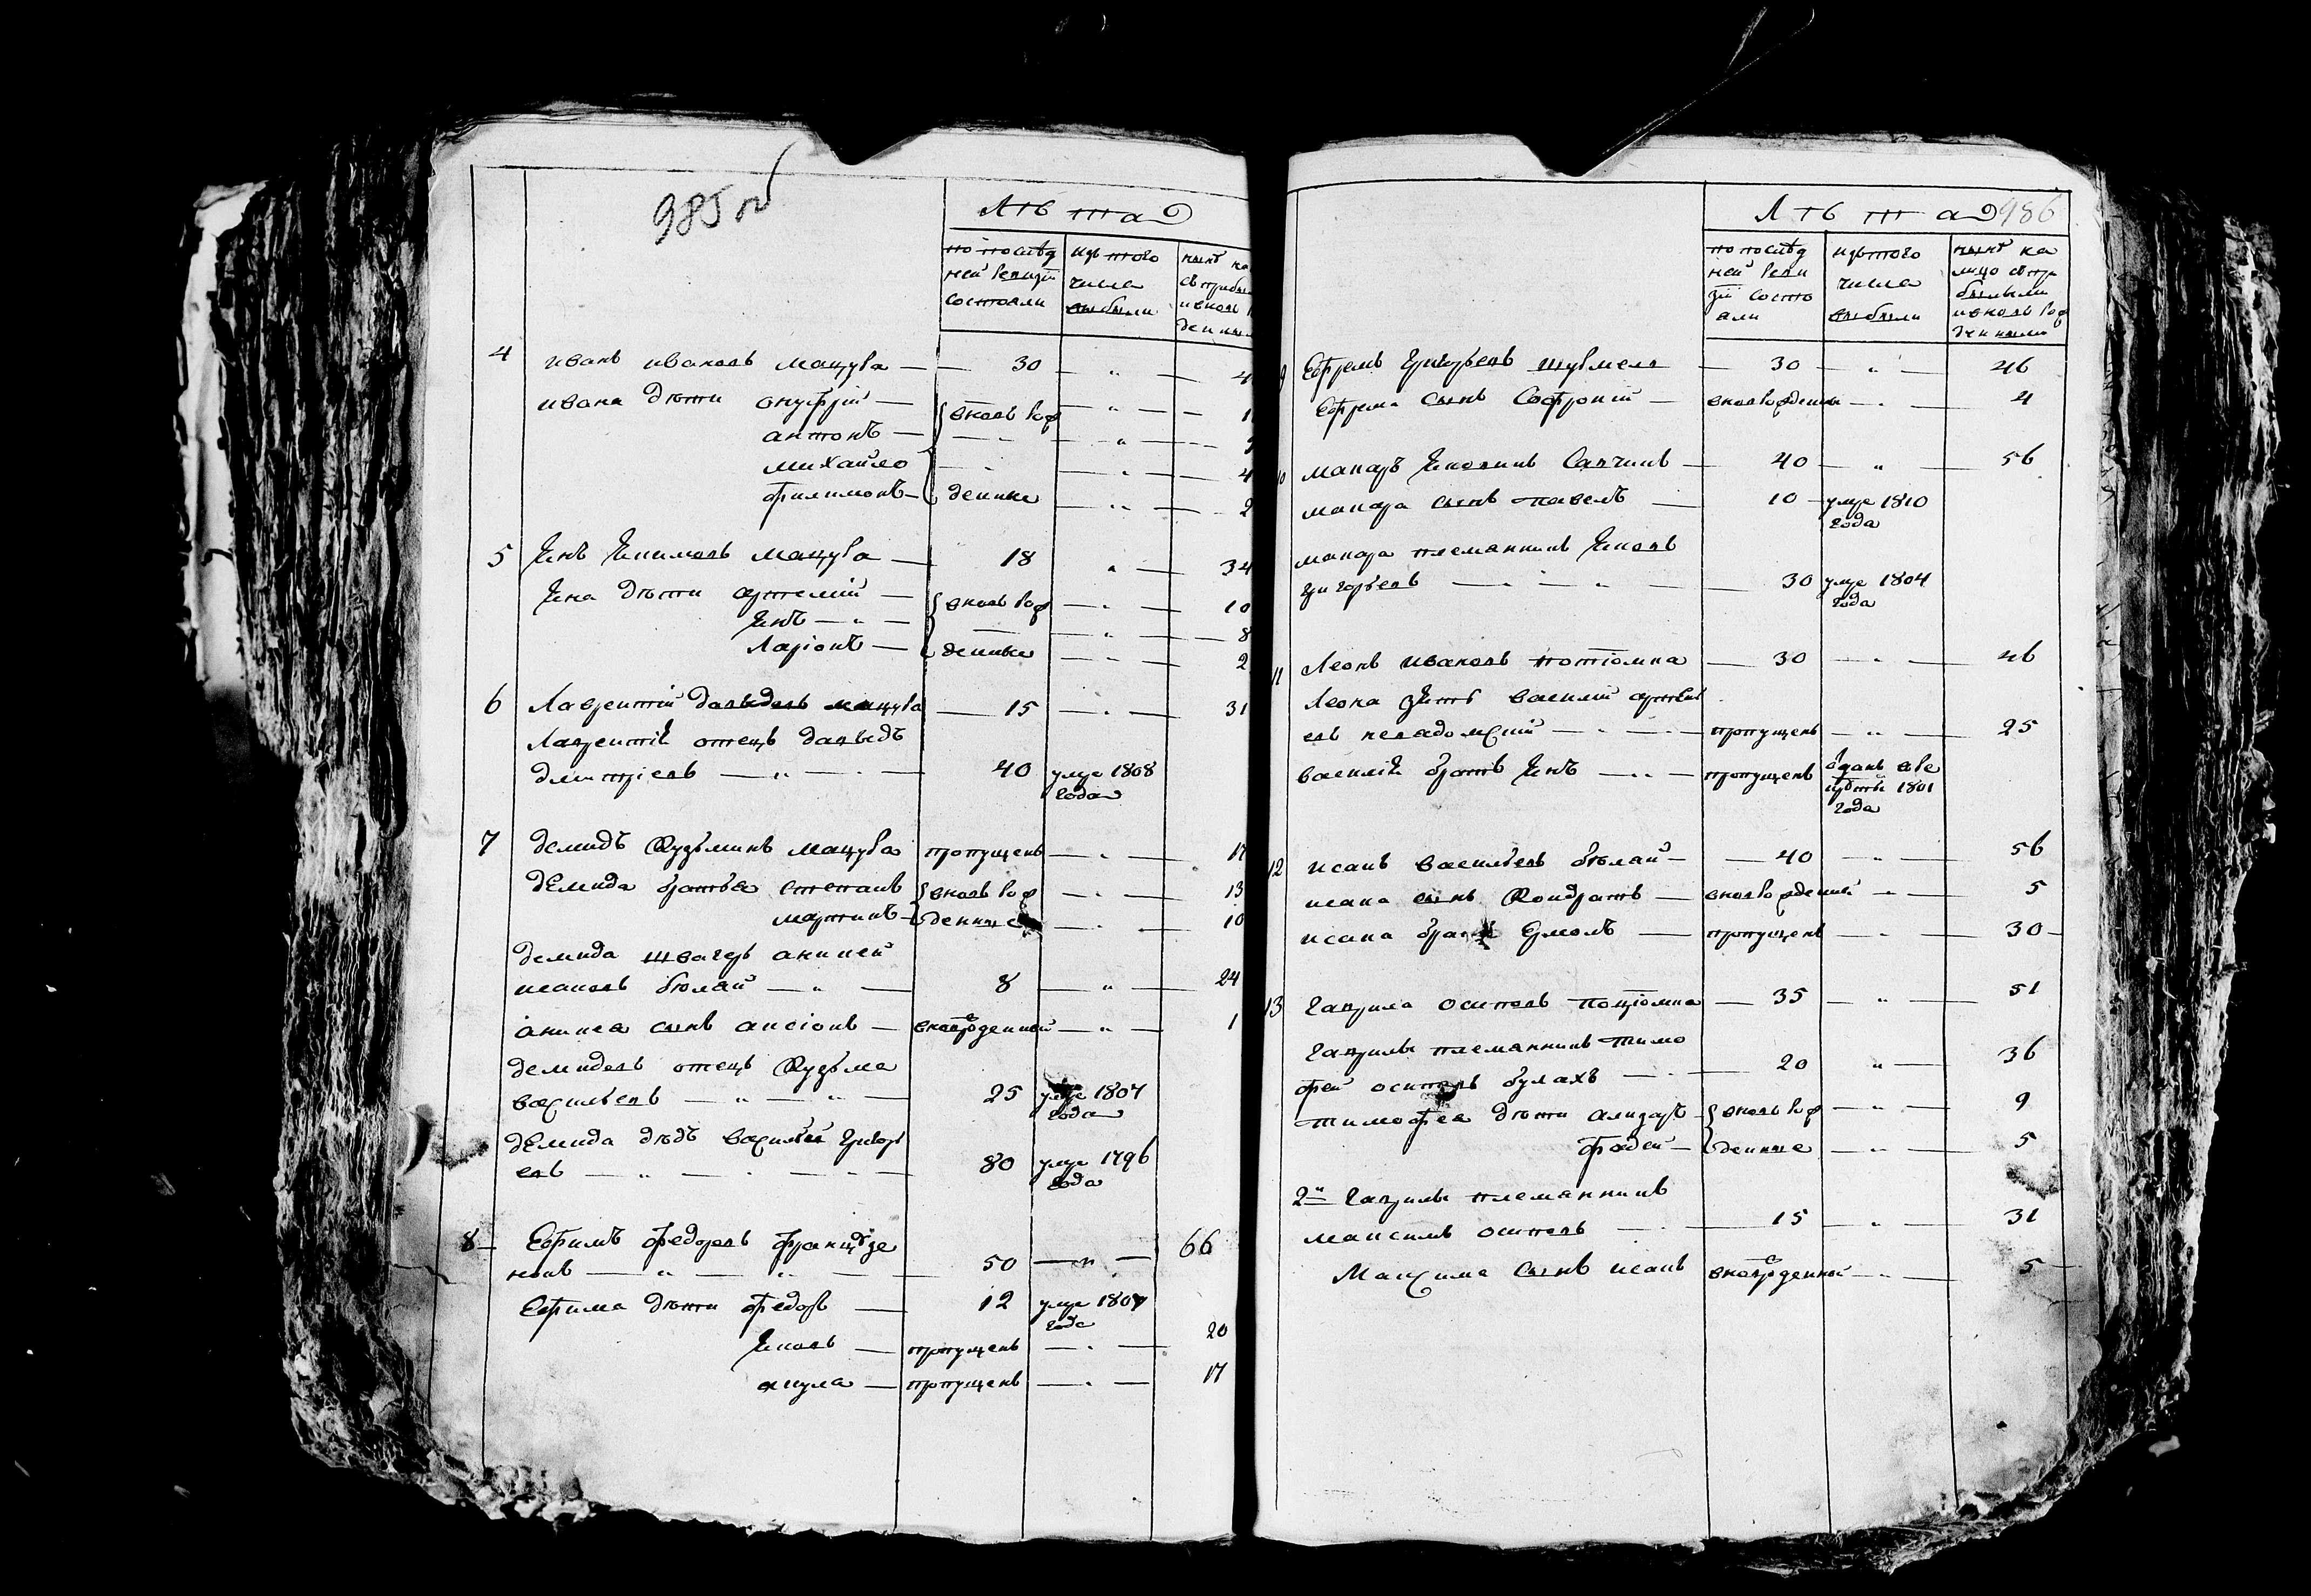 985 об
Лѣта
по послѣд
ней ревизіи
состояли
изъ того
числа
выбыли
нынѣ на
съ прибы
и вновь р
денны
4 иванъ ивановъ мацура — 30 — „ — 4
ивана дѣти онуфрій — вновь рож — „ — 1
антонъ — „ —
михайло — „ — 4
филимонъ — денные — „ — 2
5 Якъ Якимовъ мацура — 18 „ — 34
Яка дѣти артемій — вновь рож — „ — 10
Якъ — „ — „ — 8
Ларіонъ — денные — „ — 2
6 Лаврентій давыдовъ мацура — 15 — „ — 31
Лаврентія отецъ давыдъ
дмитріевъ — „ — 40 умре 1808
года
7 демидъ Кузьминъ мацура пропущенъ — „ — 17
демида братья степанъ вновь рож — „ — 13
мартинъ — денные — „ — 10
демида швагеръ аникей
исаковъ бѣлай — „ — 8 — „ — 24
аникея сынъ аксіонъ — вноврожденной — „ — 1
демидовъ отецъ Кузьма
васильевъ — „ — „ — 25 умре 1804
года
демида дѣдъ василій григорь
евъ — „ — 80 умре 1796
года
8 Ефимъ федоровъ французе
нокъ — „ — „ — 50 — „ — 66
Ефима дѣти федоръ — 12 умре 1807
года
Яковъ — пропущенъ — „ — 20
акула — пропущенъ — „ — 17
Лѣта 986
по послѣд
ней реви
зіи состо
яли
изъ того
числа
выбыли
нынѣ на
лицо съ при
былыми
и вновь рож
денными
9 Ефремъ Григорьевъ шувмела — 30 — „ — 46
Ефрема сынъ Софроній — вновьрожденны — „ — 4
10 макаръ Яковинъ Савчинъ — 40 — „ 56
макара сынъ павелъ — 10 — умре 1810
года
макара племянникъ Яковъ
григорьевъ — „ — „ — 30 умре 1804
года
11 Леонъ ивановъ потіомка — 30 — „ — 46
Леона зять василій артемь
евъ невадомскій — „ — пропущенъ — „ — 25
василія братъ Якъ — „ — пропущенъ в данъ в ре
круты 1801
года
12 исакъ васильевъ бѣлай — 40 — „ — 56
исака сынъ Кондратъ — вновьрожденный „ — 5
исака братъ Ермолъ — пропущенъ — „ — 30
13 гаврила осиповъ потіомка — 35 — „ — 51
гаврилы племянникъ тимо
фей осиповъ булахъ — 20 „ — 36
тимофея дѣти ализаръ — вновь рож — „ — 9
фадей — денные — „ — 5
2й гаврилы племянникъ
максимъ осиповъ — 15 — „ — 31
Максима сынъ исакъ вноврожденной — „ — 5